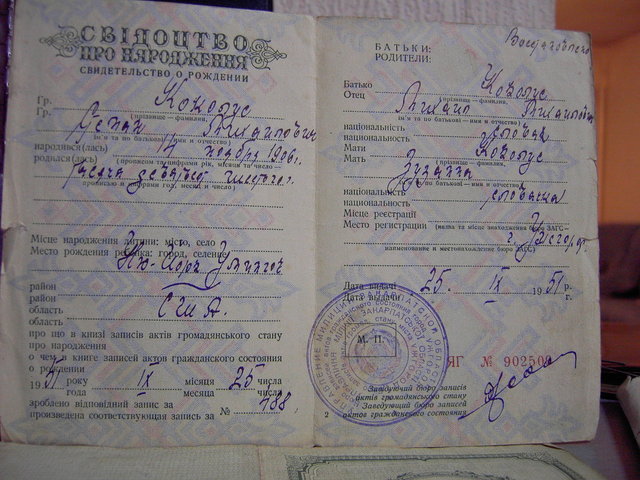 СВІДОЦТВО
ПРО НАРОДЖЕННЯ
СВИДЕТЕЛЬСТВО О РОЖДЕНИИ
Гр.
Гр. Кокопус
(прізвище — фамилия,
Степан Михайлович
ім'я та по батькові — имя и отчество)
народився(лась) 14 ноября 1906 г.
родилась(лась) (прописом та цифрами рік, місяць та число
тысяча девятьсот шестого г.
прописью и цифрами год, месяц и число)
Місце народження дитини: місто, село
Место рождения ребенка: город, селение
Нью-Йорк
район
район
область
область США.
про що в книзі записів актів громадянського стану
про народження
о чем в книге записей актов гражданского состояния
о рождении
1951 року IX місяця 25 числа
года месяца числа
зроблено відповідний запис за
произведена соответствующая запись за № 788
БАТЬКИ:
РОДИТЕЛИ:
Батько
Отец Кокопус
(прізвище — фамилия,
Михаил Михайлович
ім'я та по батькові — имя и отчество)
національність
национальность словак
Мати
Мать Кокопус
(прізвище — фамилия,
Зузанна
ім'я та по батькові — имя и отчество)
національність
национальность словачка
Місце реєстрації
Место регистрации (назва та місце знаходження бюро ЗАГС—
г. Ужгород
наименование и местонахождение бюро ЗАГС)
Дата видачі
Дата выдачи 25. IX 1951 р.
г.
М. П.
ЯГ №
Завідуючий бюро записів
актів громадянського стану
Заведующий бюро записей
2 актов гражданского состояния